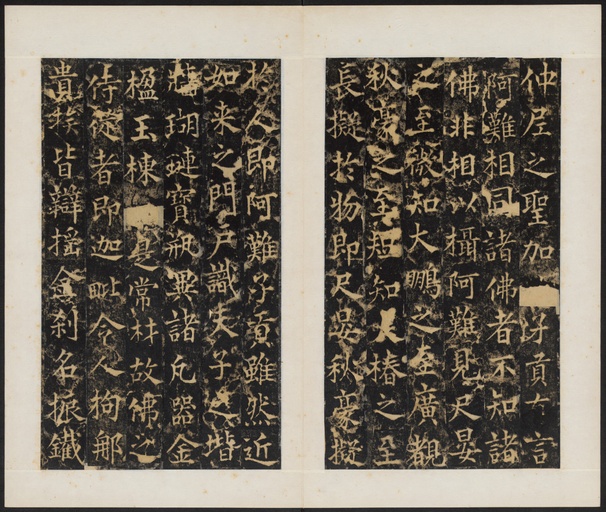 仲尼之聖加子貢之言
阿難相同諸佛者不知諸
佛非相以攝阿難見尺晏
之至微知大鵬之至廣觀
秋豪之至短知大椿之至
長擬於物即尺晏秋豪擬
於人即阿難子貢雖然近
如来之門戶識夫子之墻
瑚璉寶瓶異諸凡器金
楹玉棟是常材故佛之
侍從者即迦毗令人拘那
貴族皆辯揺金刹名振鐵